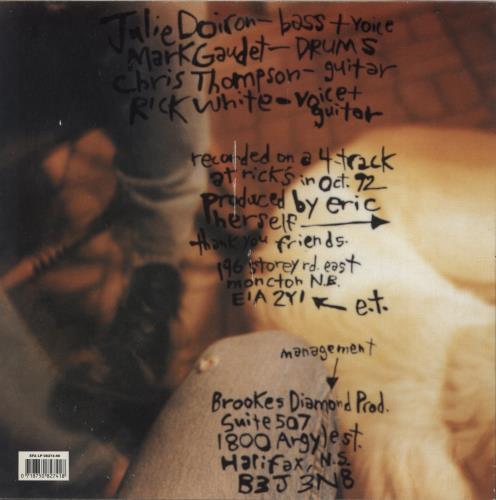 Julie Doiron - bass + voice
Mark Gaudet - DRUMS
Chris Thompson - guitar
Rick White - voice +
guitar
recorded on a 4-track
at rick's in oct. 92
produced by eric
herself
thank you friends.
196 storey rd. east
moncton N.B.
E1A 2Y1 e.t.
management
Brookes Diamond Prod.
Suite 507
1800 Argyle st.
Halifax, N.S.
B3J 3N8